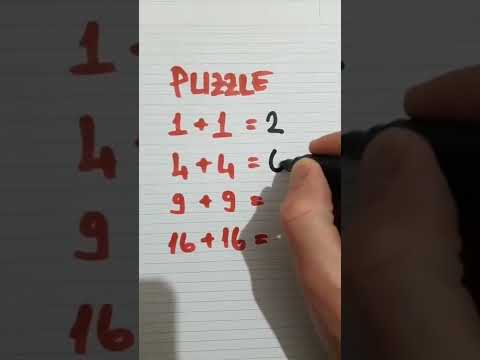 PUZZLE
1 + 1 = 2
4 + 4 = 6
9 + 9 =
16 + 16 =